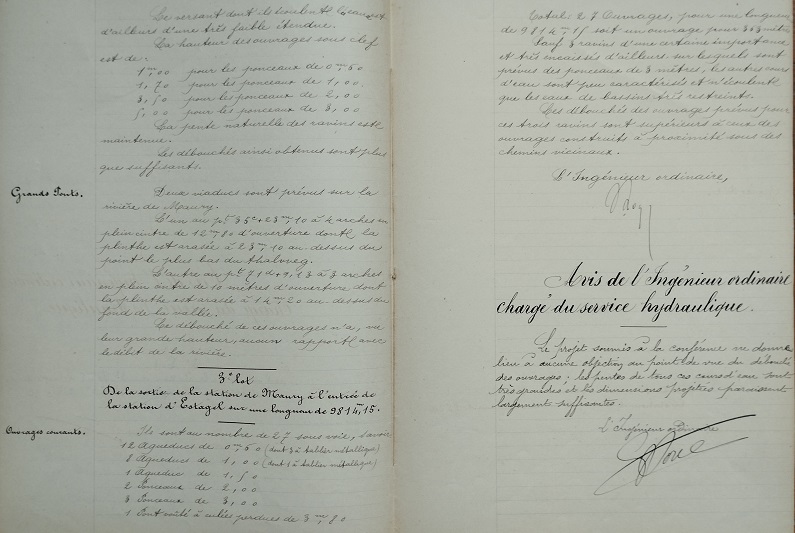 Le versant dont descendent les eaux est
d'ailleurs d'une très faible étendue.
La hauteur des ouvrages sous clef
est de:
1m,00 pour les ponceaux de 0m,60
1,70 pour les ponceaux de 1,00
3,50 pour les ponceaux de 2,00
5,00 pour les ponceaux de 3,00
La pente naturelle des ravins est
maintenue.
Les débouchés ainsi obtenus sont plus
que suffisants.
Grands Ponts.
Deux viaducs sont prévus sur la
rivière de Maury.
L'un au pt 35c+23m,10 à 4 arches en
plein cintre de 12m,80 d'ouverture dont la
plinthe est arasée à 23m,10 au dessus du
point le plus bas du thalweg.
L'autre au pt 71d+9,13 à 3 arches
en plein cintre de 10 mètres d'ouverture dont
la plinthe est arasée à 14m,20 au dessus du
fond de la vallée.
Le débouché de ces ouvrages n'a, vu
leur grande hauteur, aucun rapport avec
le débit de la rivière.
3e lot
De la sortie de la station de Maury à l'entrée de
la station d'Estagel sur une longueur de 9814m,15.
Ouvrages courants.
Ils sont au nombre de 27 sous voie, savoir
12 Aqueducs de 0m,60 (dont 3 à tablier métallique)
8 Aqueducs de 1,00 (dont 1 à tablier métallique)
1 Aqueduc de 1,50
2 Ponceaux de 2,00
3 Ponceaux de 3,00
1 Pont voûté à culées perdues de 3m,80
Total: 27 Ouvrages, pour une longueur
de 9814m,15 soit un ouvrage pour 363 mètres
Sauf 3 ravins d'une certaine importance
et très encaissés d'ailleurs sur lesquels sont
prévus des ponceaux de 3 mètres, les autres cours
d'eau sont peu caractérisés et n'écoulent
que les eaux de bassins très restreints.
Les débouchés des ouvrages prévus pour
ces trois ravins sont supérieurs à ceux des
ouvrages construits à proximité sous des
chemins vicinaux.
L'Ingénieur ordinaire,
Avis de l'Ingénieur ordinaire
chargé du service hydraulique.
Le projet soumis à la conférence ne donne
lieu à aucune objection au point de vue du débouché
des ouvrages: les pentes de tous ces cours d'eau sont
très grandes et les dimensions projetées paraissent
largement suffisantes.
L'Ingénieur ordinaire